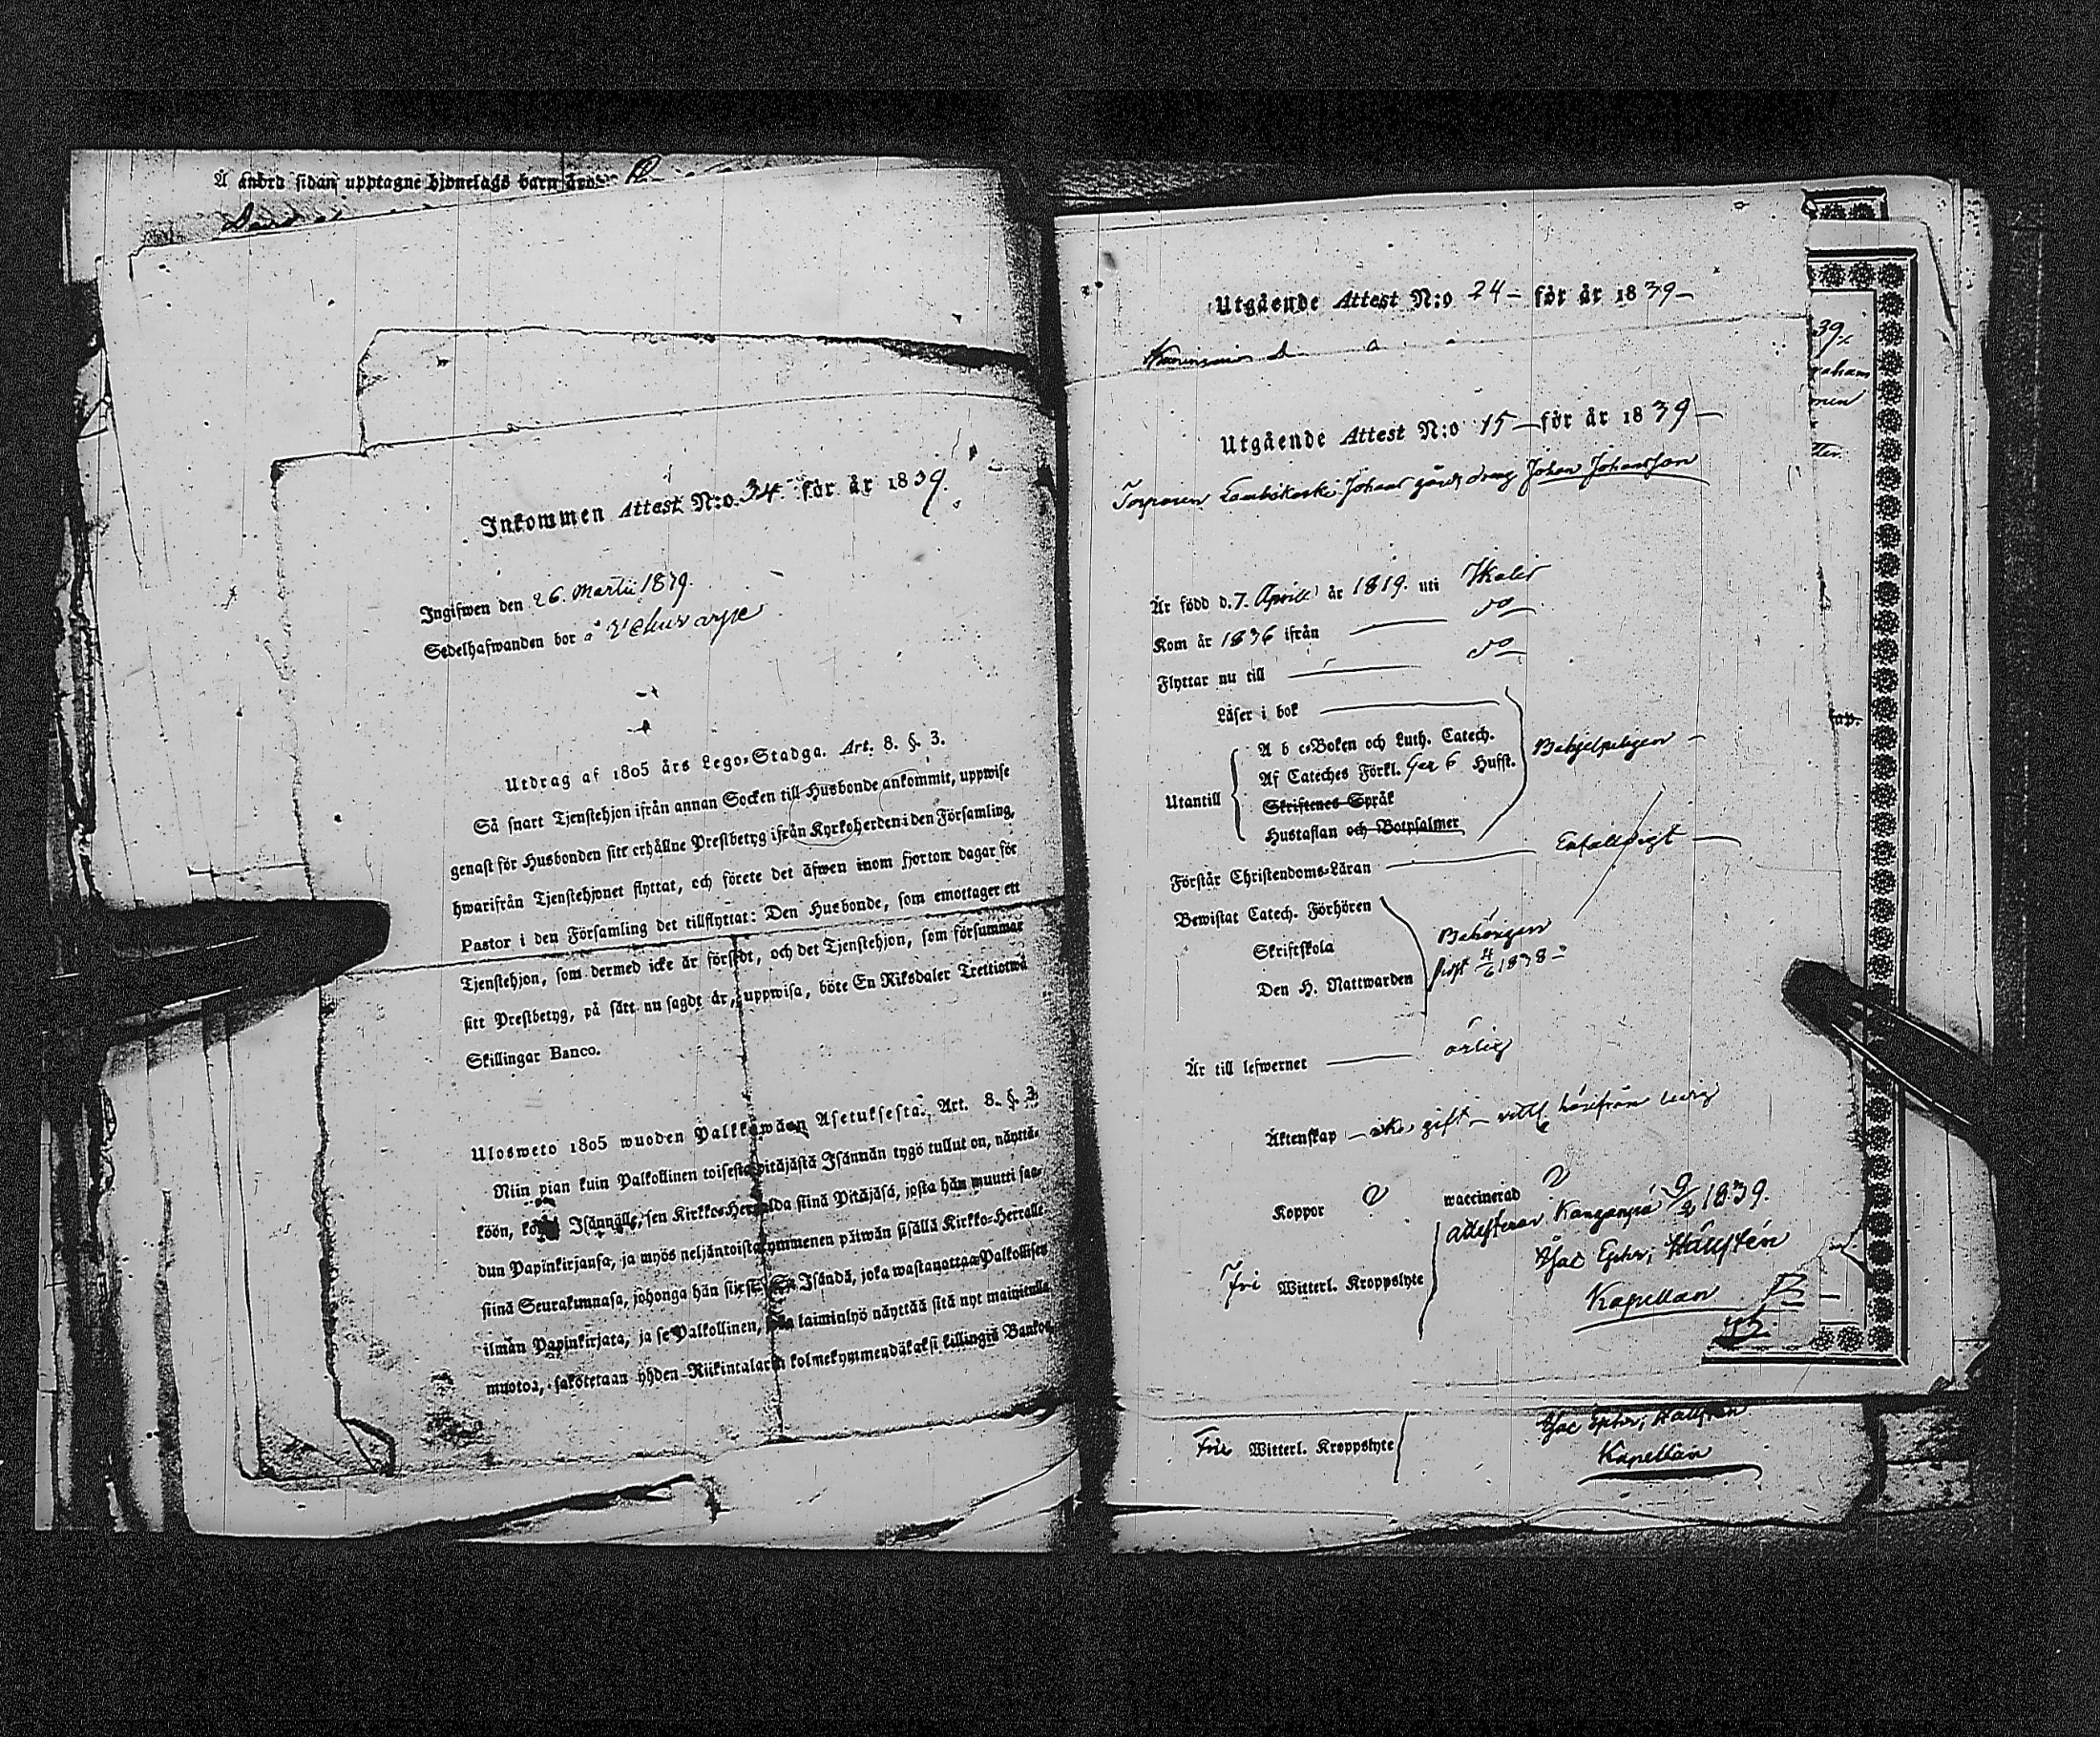 Å andra sidan upptagne hjonelags barn äro:
Inkommen Attest N:o 34 för år 1839.
Ingifwen den 26. Martii 1839.
Sedelhafwanden bor å
Utdrag af 1805 års Lego-Stadga. Art. 8. §. 3.
Så snart Tjenstehjon ifrån annan Socken till Husbonde ankommit, uppwise
genast för Husbonden sitt erhållne Prestbetyg ifrån Kyrkoherden i den Församling,
hwarifrån Tjenstehjonet flyttat, och förete det äfwen inom fjorton dagar för
Pastor i den Församling det tillflyttat: Den Husbonde, som emottager ett
Tjenstehjon, som dermed icke är försedt, och det Tjenstehjon, som försummar
sitt Prestbetyg, på sätt nu sagdt är, uppwisa, böte En Riksdaler Trettiotwå
Skillingar Banco.
Ulosweto 1805 wuoden Palkkawäen Asetuksesta. Art. 8. §. 3.
Niin pian kuin Palkollinen toisesta pitäjästä Isännän tygö tullut on, näyttä-
köön, Isännälle, sen Kirkko-Herralda siinä Pitäjäsä, josta hän muutti saa-
dun Papinkirjansa, ja myös neljäntoistakymmenen päiwän sisällä Kirkko-Herralle
siinä Seurakunnasa, johonga hän siirsi: Se Isändä, joka wastanottaa Palkollisen
ilman Papinkirjata, ja se Palkollinen, laiminlyö näyttää sitä nyt mainitulla
muotoa, sakotetaan yhden Riikintalarin kolmekymmendäkaksi killingiä Bankos.
Utgående Attest N:o 24 – för år 1839 –
Utgående Attest N:o 15 – för år 1839 –
Torparen Johans gårds dräng Johan Johansson
Är född d. 7. Aprill år 1819. uti Ikalis
Kom år 1836 ifrån — do
Flyttar nu till — do
Läser i bok
A b c-Boken och Luth. Catech.
Af Cateches Förkl. 6 Hufst.
Utantill
Skriftenes Språk
Hustaflan och Botpsalmer
Behjelpeligen –
Förstår Christendoms-Läran — Enfalldigt —
Bewistat Catech. Förhören
Skriftskola
Den H. Nattwarden
Behörigen
sidst 4/6 1838 –
Är till lefwernet — ärlig
Äktenskap – icke gift – härifrån ledig
Koppor waccinerad
Fri Witterl. Kroppslyte
attesterar Kangaspä 9/3 1839.
Jac Ephr; Hällsten
Kapellan
Fri Witterl. Kroppslyte
Jac Ephr; Hällsten
Kapellan
39.